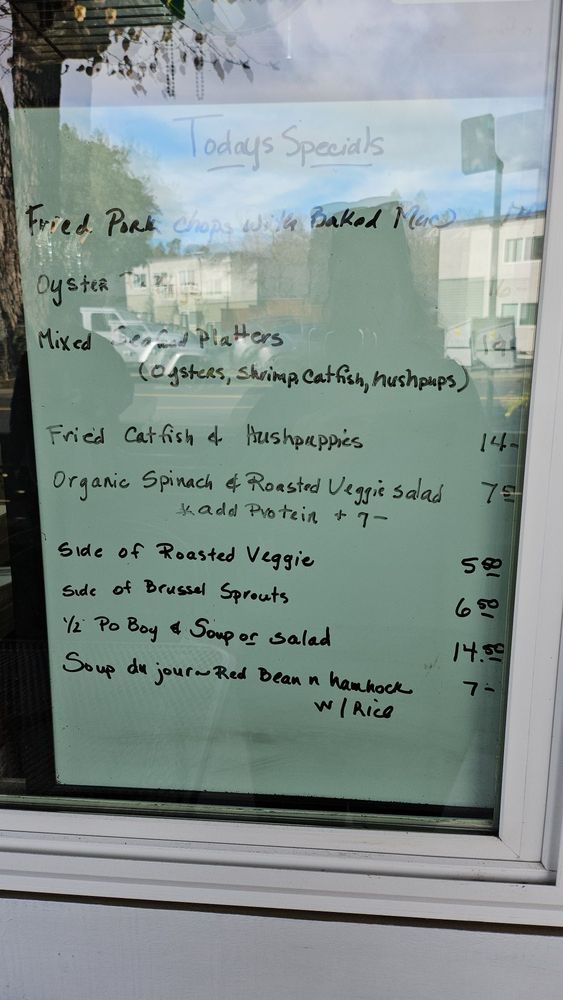 Todays Specials
Fried Pork Chops with Baked Mac
Oyster
Mixed Seafood Platters
(Oysters, Shrimp, Catfish, hushpups)
Fried Catfish & Hushpuppies 14-
Organic Spinach & Roasted Veggie salad
*add Protein + 7-
Side of Roasted Veggie 5.00
Side of Brussel Sprouts 6.50
1/2 Po Boy & Soup or salad 14.50
Soup du jour~Red Bean n hamhock 7-
W/Rice